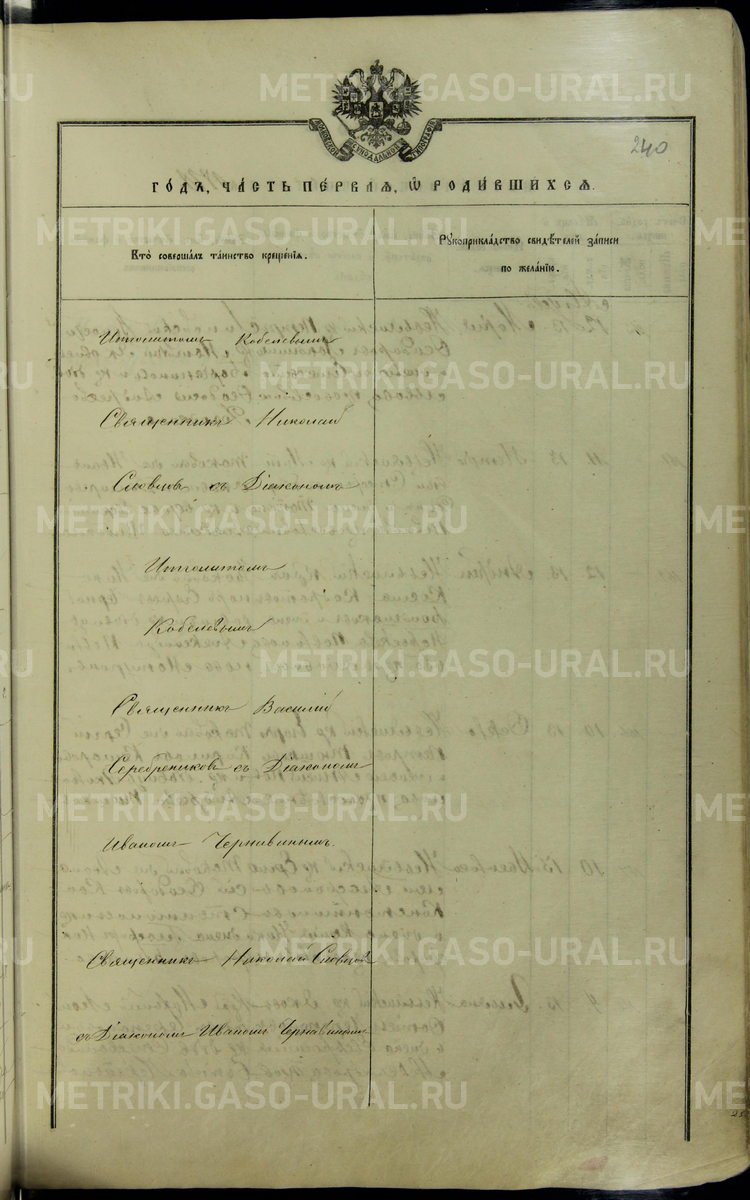 METRIKI.GASO-URAL.RU
МОСКОВСКОЙ СУНОДАЛЬНОЙ ТИПОГРАФІИ
240
ГОДЪ, ЧАСТЬ ПЕРВАЯ, Ѡ РОДИВШИХСЯ.
Кто совершалъ таинство крещенїѧ.
Рꙋкоприкладство свидѣтелей записи
по желанїю.
Ипполитомъ Кобелевымъ
Священникъ Николай
Словцовъ съ Діакономъ
Ипполитомъ
Кобелевымъ
Священникъ Василій
Серебрениковъ съ Діакономъ
Иваномъ Чернавинымъ.
Священникъ Николай Словцовъ
съ Діакономъ Иваномъ Чернавинымъ